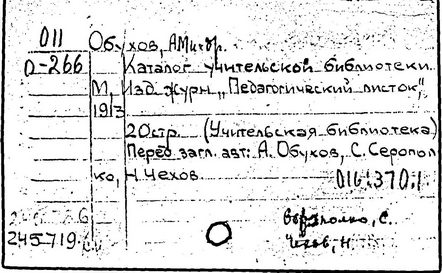 011 Обухов, А. М. и др.
О-266 Каталог учительской библиотеки.
М, Изд. журн „Педагогический листок",
1913
20 стр. (Учительская библиотека)
Перед загл. авт: А. Обухов, С. Серопол
ко, Н. Чехов.
016:37
245719
Чехов, Н